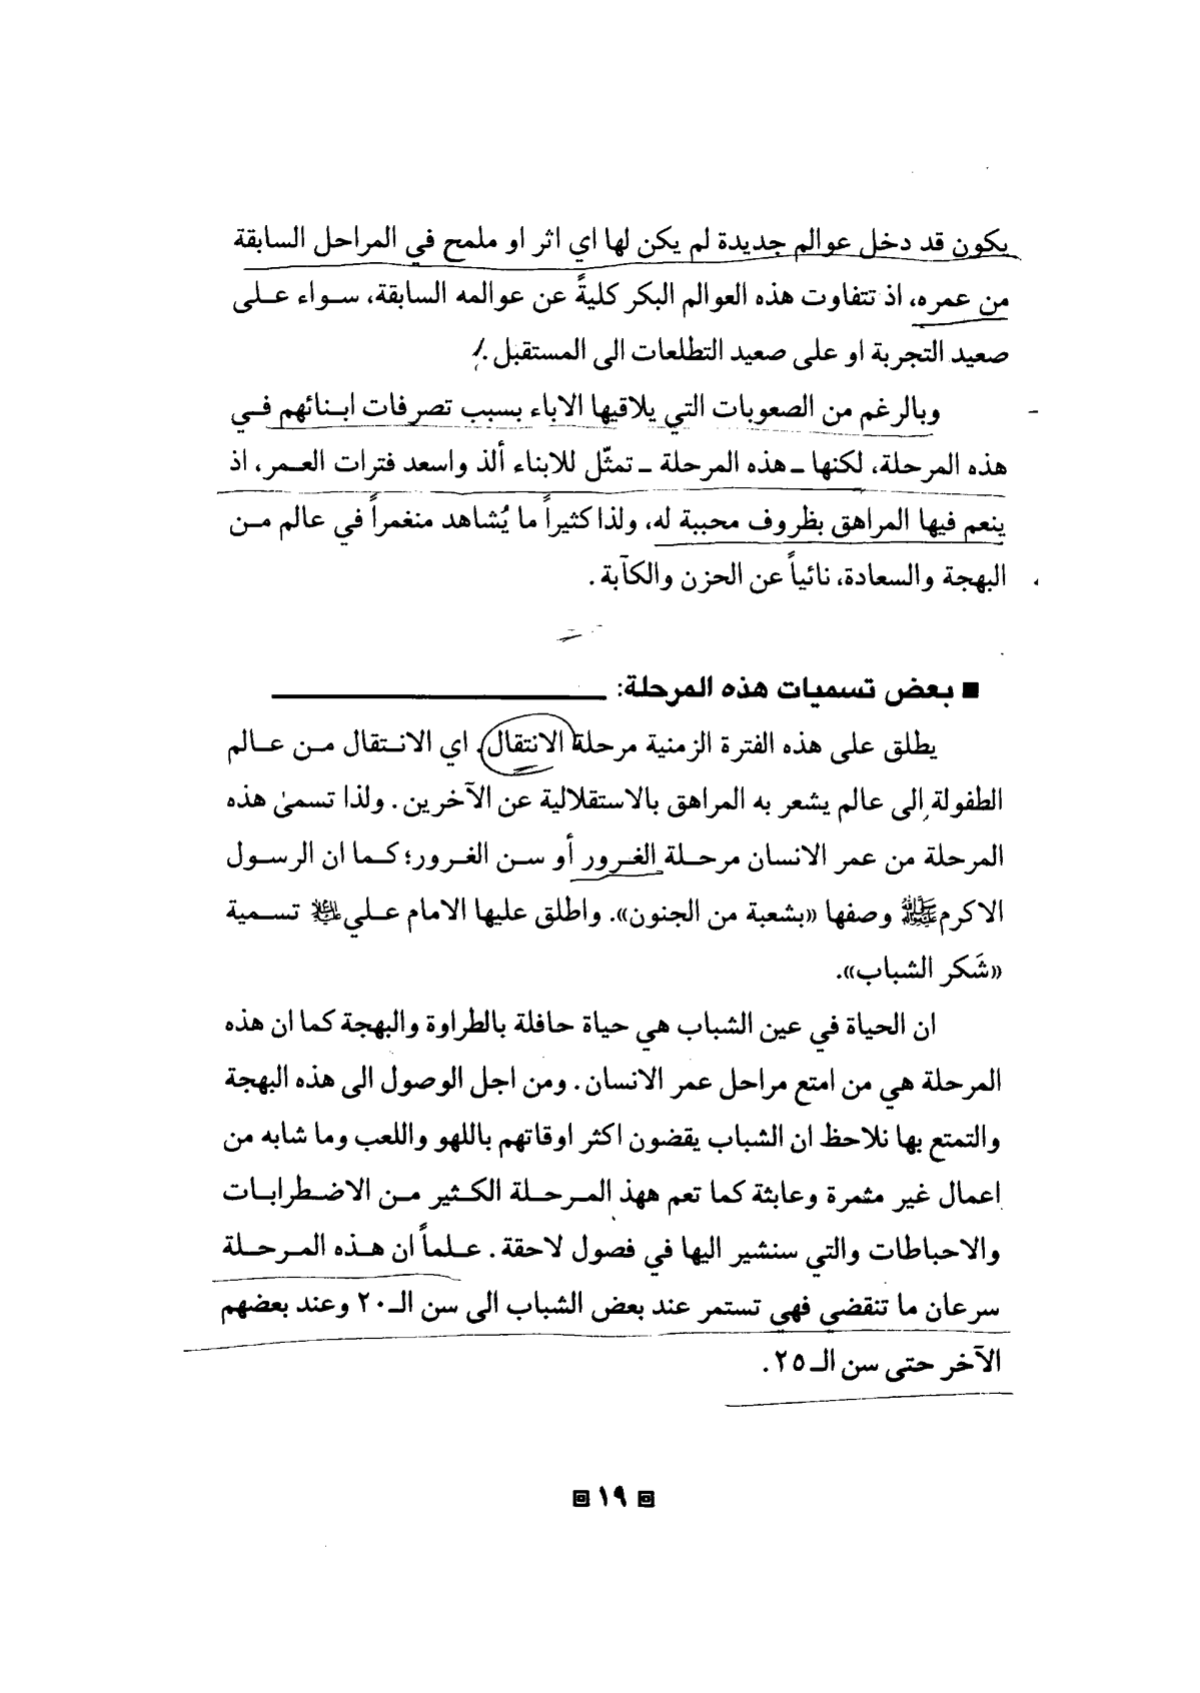 يكون قد دخل عوالم جديدة لم يكن لها اي اثر او ملمح في المراحل السابقة
من عمره، اذ تتفاوت هذه العوالم البكر كليةً عن عوالمه السابقة، سواء على
صعيد التجربة او على صعيد التطلعات الى المستقبل.
وبالرغم من الصعوبات التي يلاقيها الاباء بسبب تصرفات ابنائهم في
هذه المرحلة، لكنها ـ هذه المرحلة ـ تمثّل للابناء ألذ واسعد فترات العمر، اذ
ينعم فيها المراهق بظروف محببة له، ولذا كثيراً ما يُشاهد منغمراً في عالم من
البهجة والسعادة، نائياً عن الحزن والكآبة.
■ بعض تسميات هذه المرحلة:
يطلق على هذه الفترة الزمنية مرحلة الانتقال، اي الانتقال من عالم
الطفولة الى عالم يشعر به المراهق بالاستقلالية عن الآخرين. ولذا تسمىٰ هذه
المرحلة من عمر الانسان مرحلة الغرور أو سن الغرور؛ كما ان الرسول
الاكرم ﷺ وصفها «بشعبة من الجنون». واطلق عليها الامام علي عليه السلام تسمية
«سَكر الشباب».
ان الحياة في عين الشباب هي حياة حافلة بالطراوة والبهجة كما ان هذه
المرحلة هي من امتع مراحل عمر الانسان. ومن اجل الوصول الى هذه البهجة
والتمتع بها نلاحظ ان الشباب يقضون اكثر اوقاتهم باللهو واللعب وما شابه من
اعمال غير مثمرة وعابثة كما تعم ههذ المرحلة الكثير من الاضطرابات
والاحباطات والتي سنشير اليها في فصول لاحقة. علماً ان هذه المرحلة
سرعان ما تنقضي فهي تستمر عند بعض الشباب الى سن الـ٢٠ وعند بعضهم
الآخر حتى سن الـ٢٥.
١٩